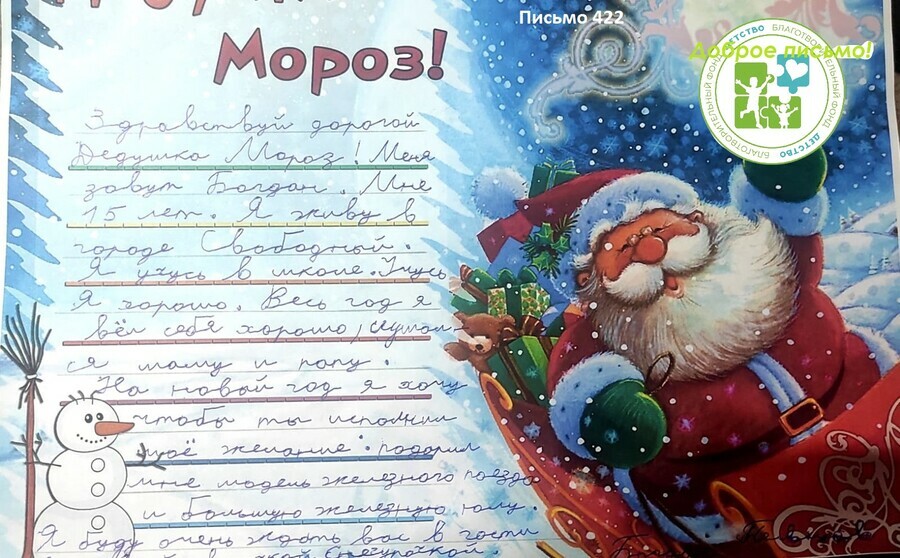 Письмо 422
Доброе письмо!
БЛАГОТВОРИТЕЛЬНЫЙ ФОНД ДЕТСТВО БЛАГОТВОРИТЕЛЬНЫЙ ФОНД ДЕТСТВО
Мороз!
Здравствуй дорогой
Дедушка Мороз! Меня
зовут Богдан. Мне
15 лет. Я живу в
городе Свободный.
Я учусь в школе. Учусь
Я хорошо. Весь год я
вёл себя хорошо, слушал-
ся маму и папу.
На новый год я хочу
чтобы ты исполнил
моё желание: подарил
мне модель железного поезда
и большую железную юлу.
Я буду очень ждать вас в гости
Снегурочкой.